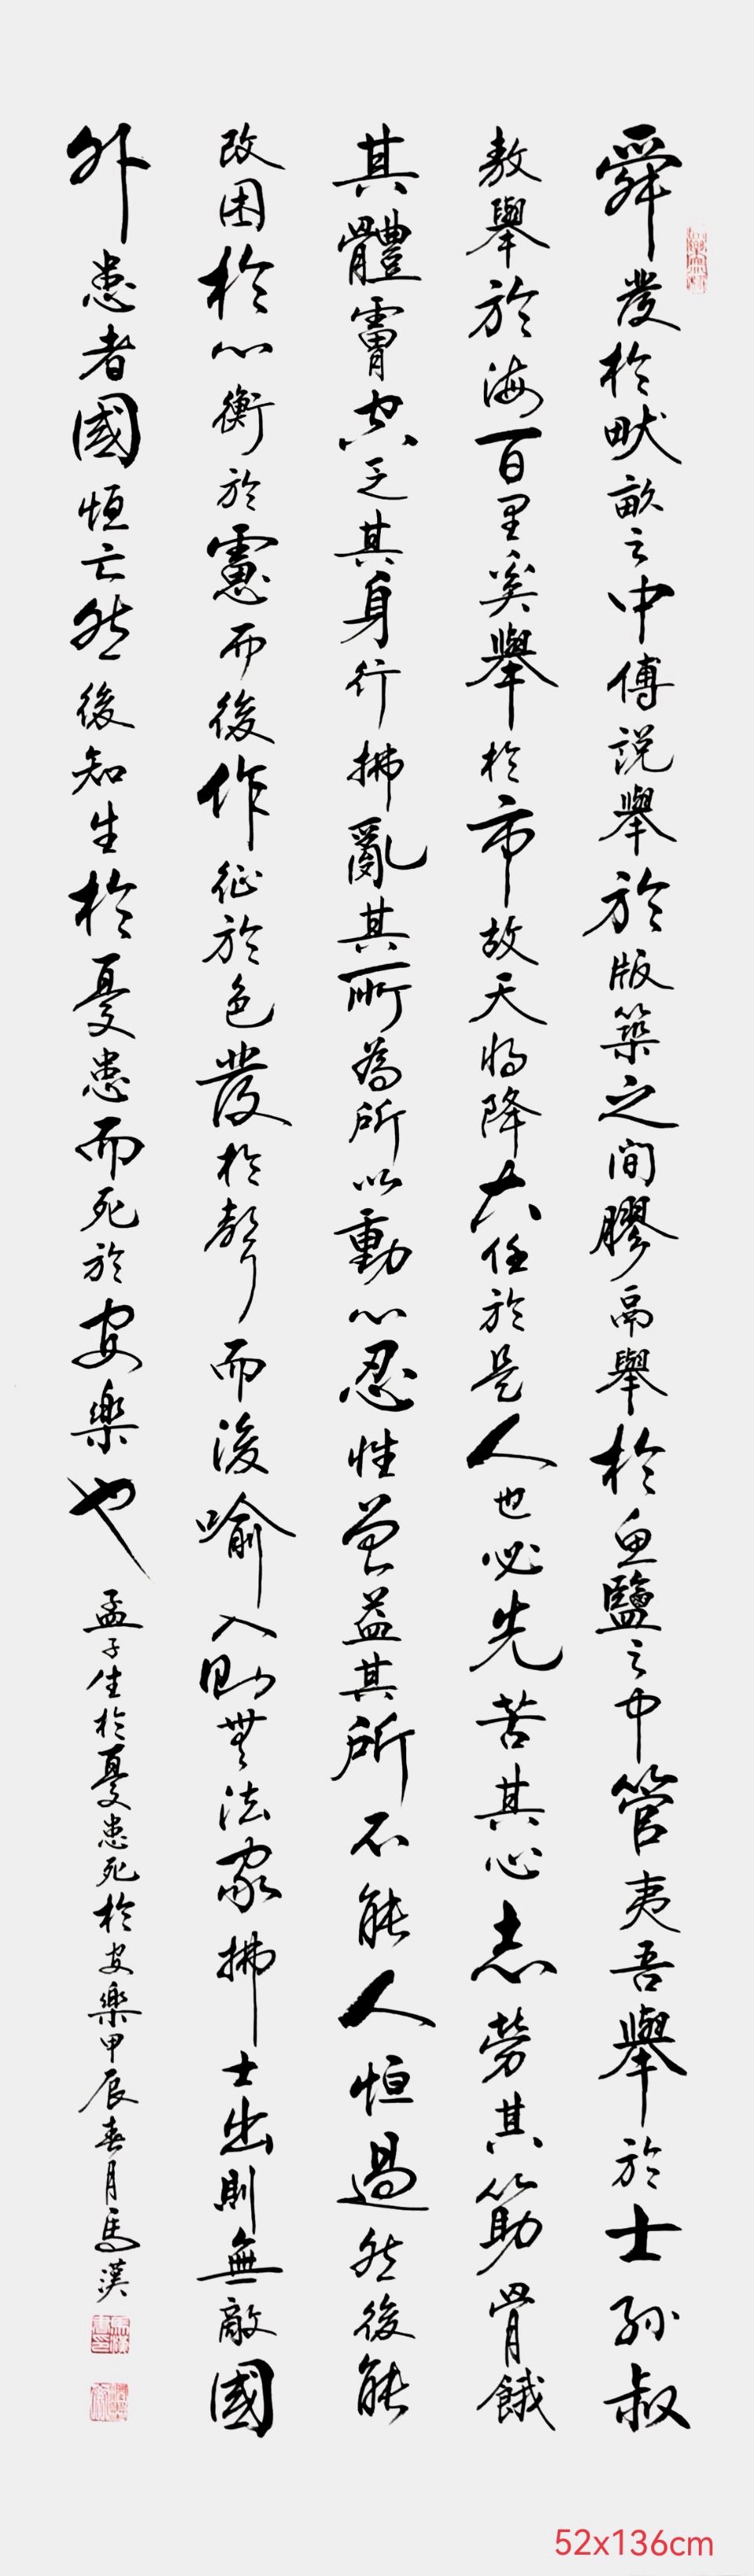 舜發於畎畝之中傅説舉於版築之間膠鬲舉於魚鹽之中管夷吾舉於士孫叔
敖舉於海百里奚舉於市故天將降大任於是人也必先苦其心志勞其筋骨餓
其體膚空乏其身行拂亂其所為所以動心忍性曾益其所不能人恒過然後能
改困於心衡於慮而後作征於色發於聲而後喻入則無法家拂士出則無敵國
外患者國恒亡然後知生於憂患而死於安樂也
孟子生於憂患死於安樂甲辰春月馬漢
52x136cm